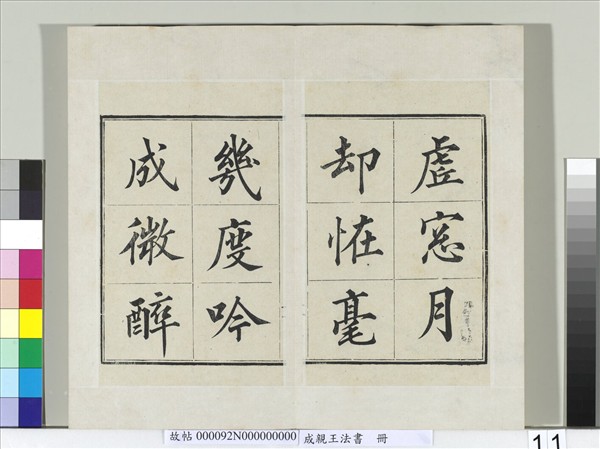 虛窓月
却恠毫
幾度吟
成微醉
故帖 000092N000000000 成親王法書 冊
11